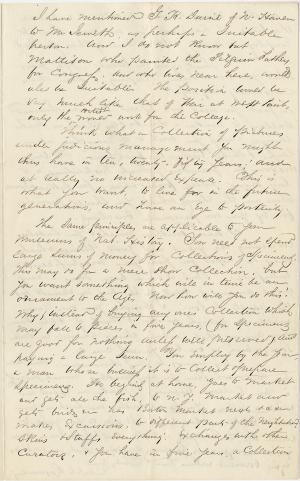 I have mentioned J. H. of N. Haven
to Mr. as perhaps a Suitable
person. And I do not know but
Mattison who painted the Pilgrim Fathers
for Congress, and who lives near here, would
also be Suitable. The position would be
very much like that of Weir at West Point,
only the artist work for the College.
Think what a Collection of pictures
under judicious management you might
thus have in ten, twenty, fifty years; and
at really no increased expense. This is
what you want, to live for in the future
generations, and have an eye to posterity
The same principles are applicable to your
Museum of Nat. History. You need not spend
large sums of money for Collections of Specimens,
this may do for a mere Show Collection, but
you want something which will in time be an
ornament to the Age. Now how will you do this?
Why, instead of buying any ones Collection which
may fall to pieces in five years, (for Specimens
are good for nothing unless well preserved) and
paying a large sum, You employ by the year
a man whose business it is to Collect & prepare
Specimens. He begins at home, goes to market
and gets all the fish, to N.Y. Market and
gets birds,
makes Excursions to different parts of the Neighborhood
Skins & Stuffs everything. Exchanges with other
Curators, & you have in five years, a Collection